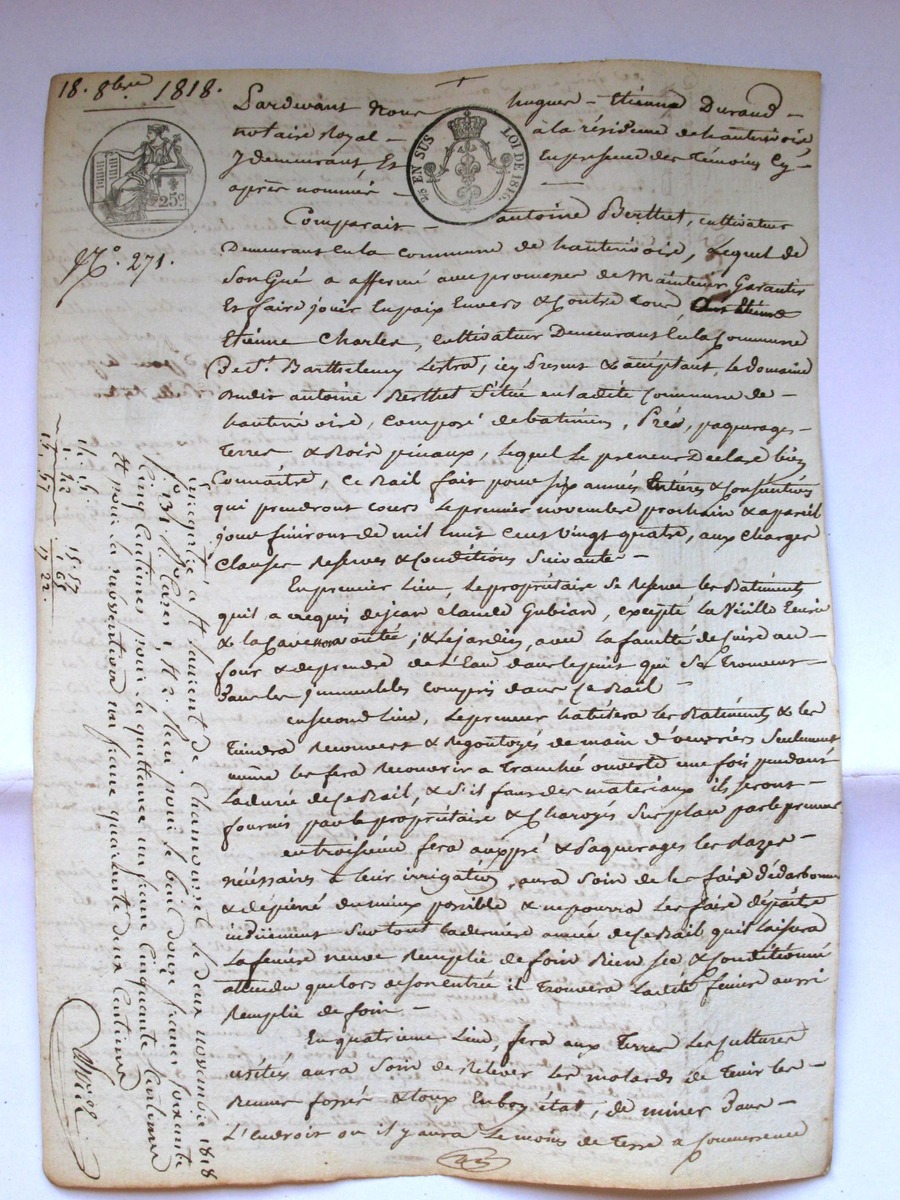 18. 8bre 1818.
Pardevant Nous hugues - Etienne Durand -
notaire Royal - à la résidence de hauterivoire,
y demeurant Et En presence des Témoins Cy -
après nommés -
25 EN SUS
LOI DE 1816
25c.
No. 271.
Comparait - antoine Berthet, cultivateur
Demeurant En la Commune de hauterivoire, Lequel de
Son Gré a affermé avec promesse de Maintenir Garantir
Et faire jouir En paix Envers & Contre tous, à
Etienne Charles, Cultivateur Demeurant En la Commune
De St. Barthelemy Lestra, icy Present & acceptant, Le domaine
Dudit antoine Berthet Situé en ladite Commune de -
hauterivoire, Composé de batimens, Prés, paquerages -
Terres & Bois pinaux, Lequel Le preneur Declare bien
Connaitre, Ce Bail fait pour Six années Entières & Consécutives
qui prendront cours Le premier novembre prochain & a pareil
jour finiront de mil huit Cent Vingt quatre, aux Charges
Clauses Reserves & Conditions Suivantes -
En premier Lieu, Le propriétaire Se Reserve les Batiments
qu'il a acquis de jean Claude Gubian, excepté La Vieille Ecurie
& la Cave ; & Le jardin, avec La faculté de Cuire au -
four & de prendre de L'Eau dans Le puit qui Se Trouvent -
Dans les immeubles compris dans Ce Bail -
En Second Lieu, Le preneur habitera Les Batiments & les
Tiendra Recouverts & Regoutoyés de main d'oeuvriers Seulement
même les fera Recouvrir a Tranché ouverte une fois pendant
La durée de Ce Bail, & S'il faut des matériaux ils Seront -
fournis par Le propriétaire & Charoyés Sur place par le preneur
en troisième fera aux pré & Paquerages Les Razes -
nécéssaires à leur irrigation, aura Soin de Les faire Dédarbonner
& depierré Du mieux possible & ne pourra Les faire dépaitre
indûement Sur tout La derniere année de Ce Bail qu'il Laissera
La feniere neuve Remplie de foin Bien Sec & Conditionné
attendu que lors de Son entrée il Trouvera Ladite feniere aussi
Remplie de foin -
En quatrieme Lieu, fera aux Terres Les Cultures
usitées aura Soin de Relever Les motards de Tenir Les -
fossés En Bon état, de miner Dans -
L'Endroit où il y aura Le moins de Terre a Commencer
Enregistré à St Laurent de Chamousset le deux novembre 1818
fo. 131 Ro. Cases 1. & 2. Reçu pour le bail douze francs soixante
cinq Centimes pour la quittance un franc Cinquante Centimes
Et pour la subvention un franc quarante deux Centimes
14. 15
1. 42
15. 57
15. 57
65